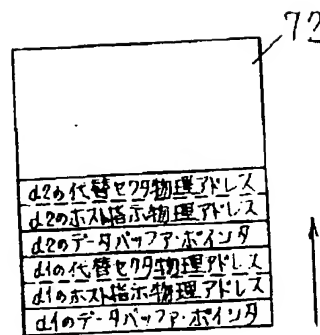 72
d2の代替セクタ物理アドレス
d2のホスト指示物理アドレス
d2のデータバッファ・ポインタ
d1の代替セクタ物理アドレス
d1のホスト指示物理アドレス
d1のデータバッファ・ポインタ